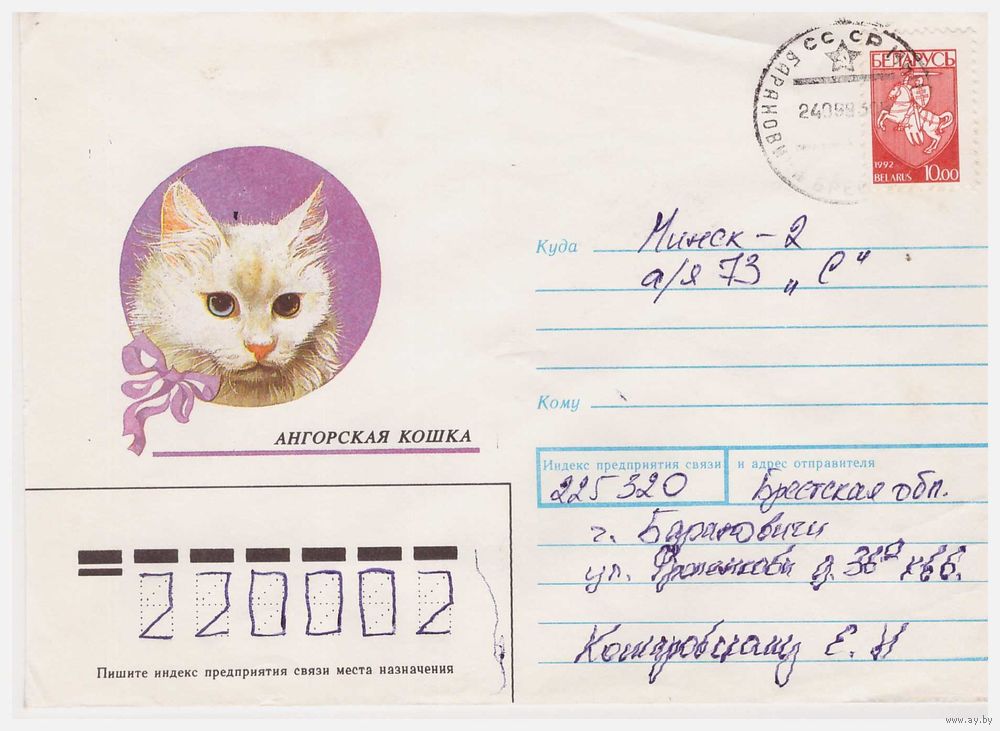 СССР
БАРАНОВИЧИ БРЕС
БЕЛАРУСЬ
1992
BELARUS 10.00
Куда Минск-2
а/я 73 „С“
Кому
АНГОРСКАЯ КОШКА
Индекс предприятия связи и адрес отправителя
225320 Брестская обл.
г. Барановичи
ул. д. 36 кв 6.
Е. И
220002
Пишите индекс предприятия связи места назначения
www.ay.by